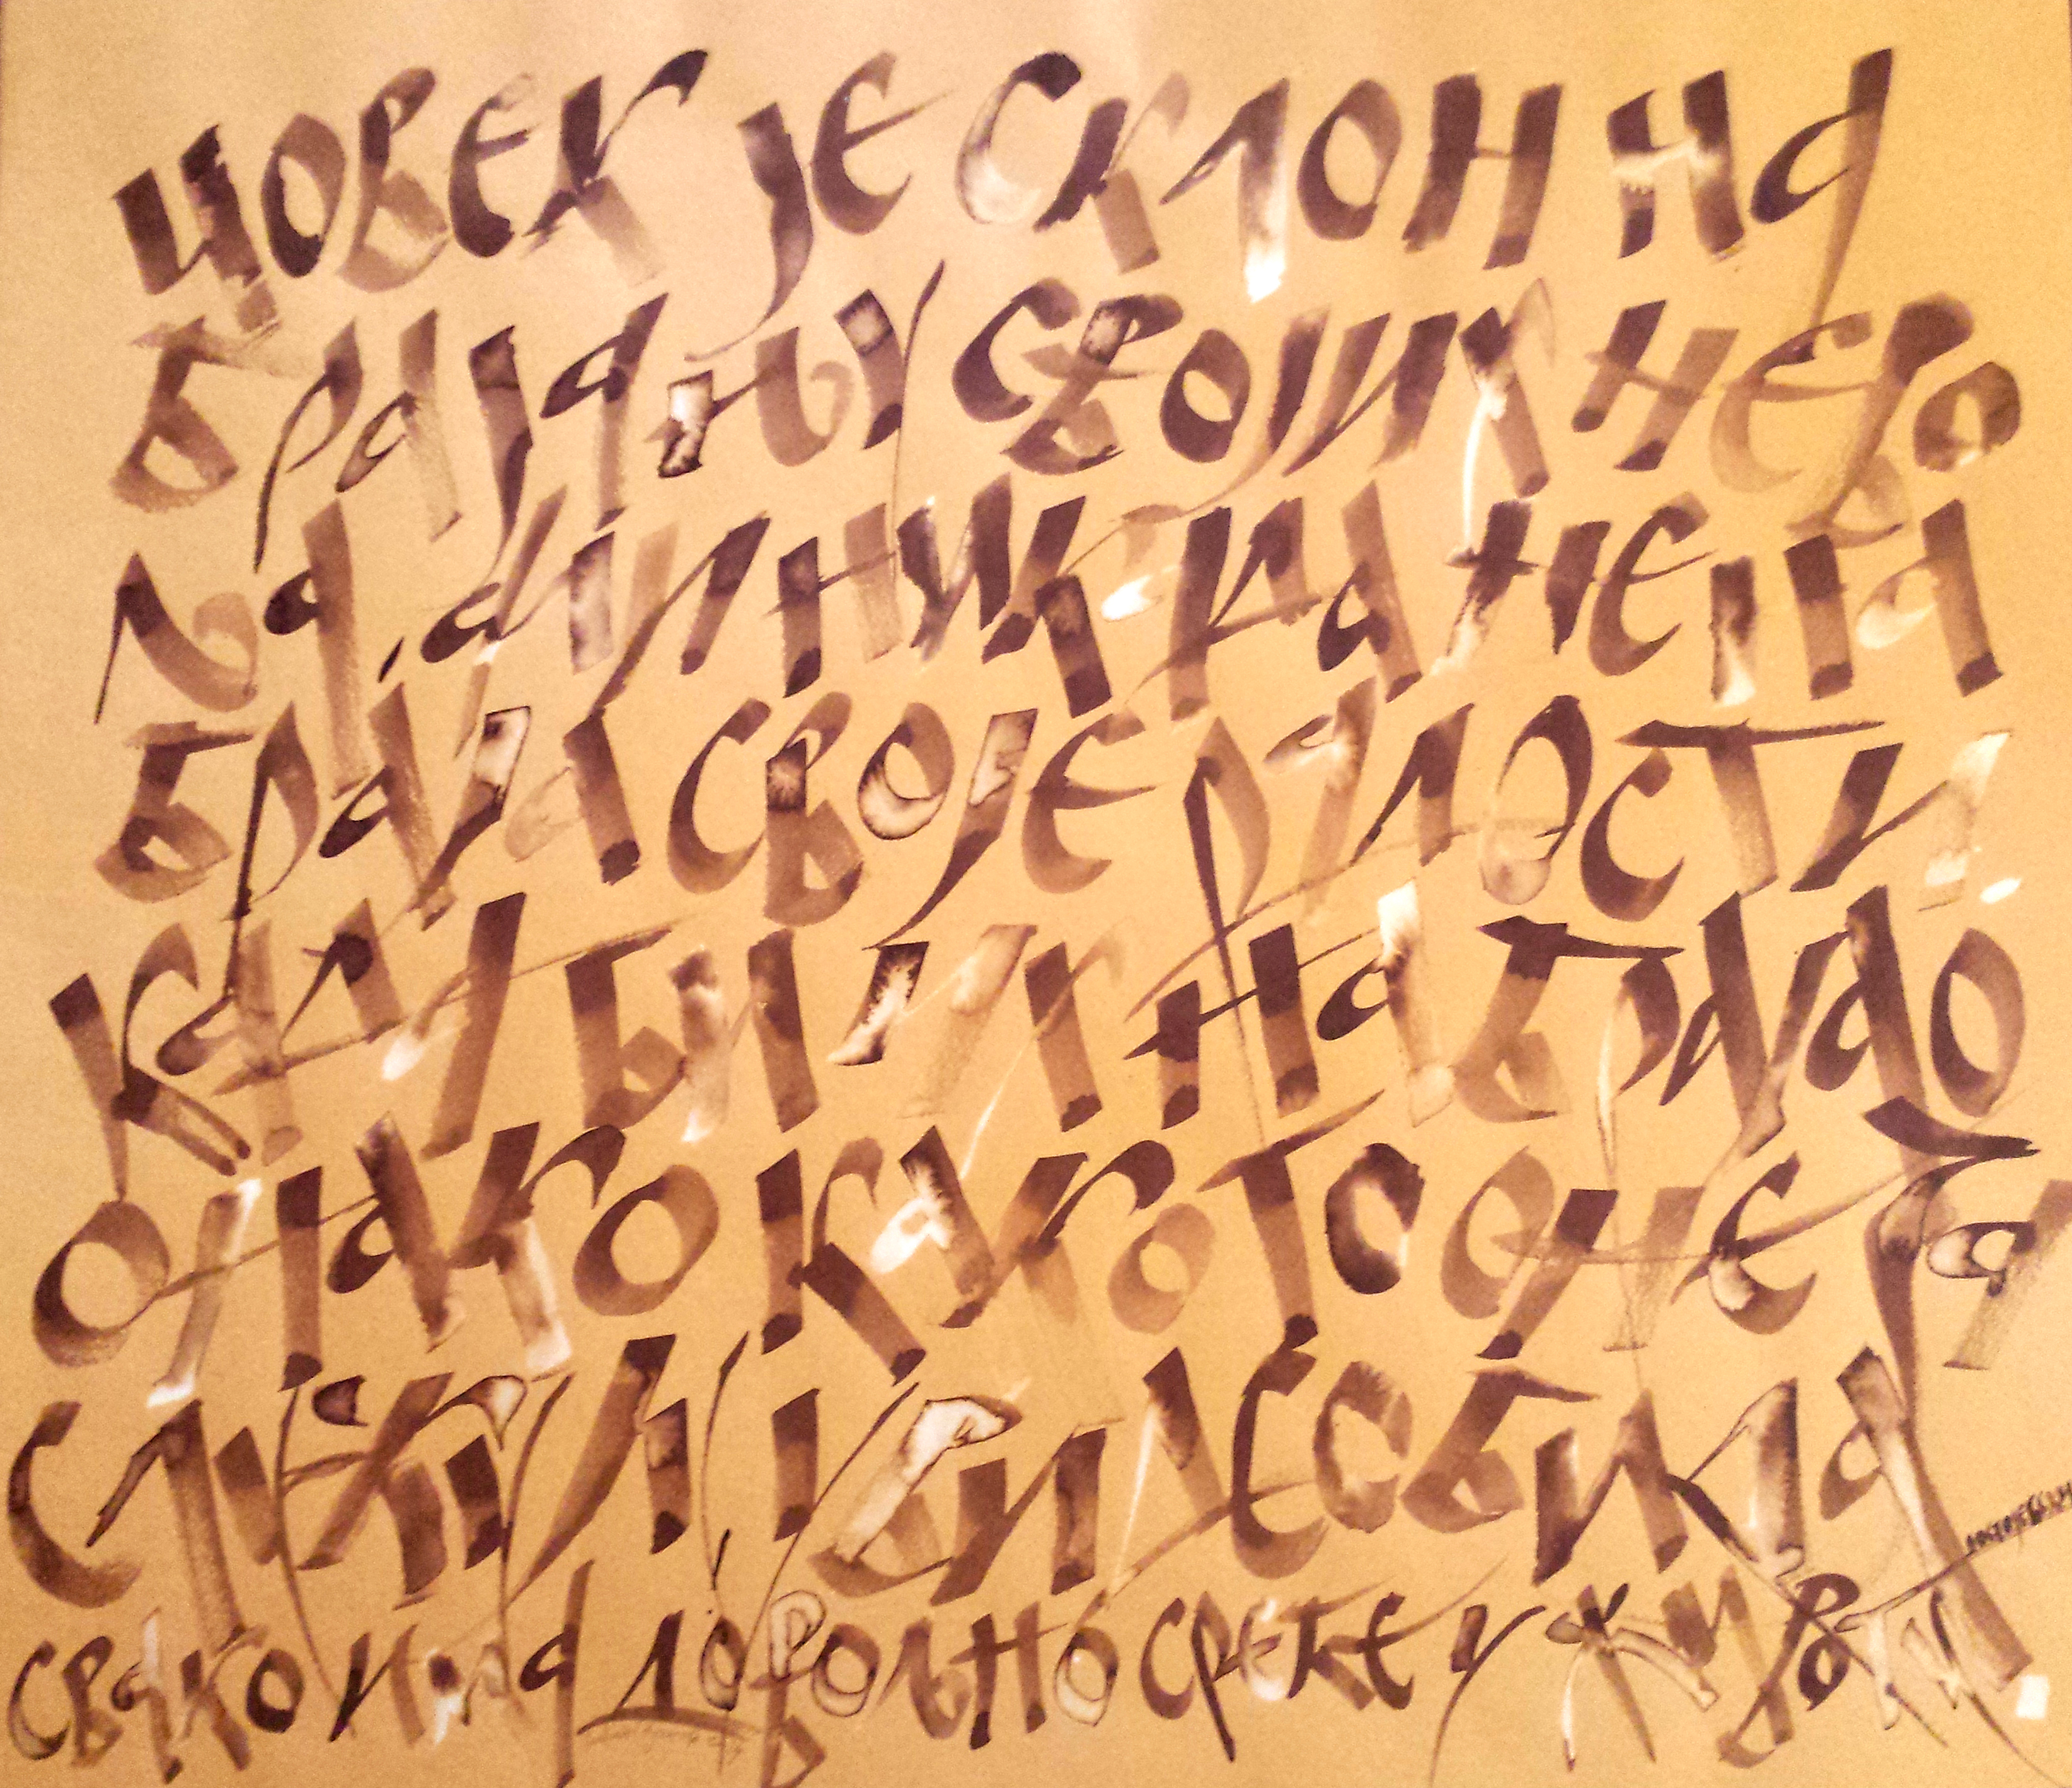 човек је склон на
брајању својих нево
ља, али никада не на
браја своје радости
када би их набрајао
онако како то оне за
служују, видео би да
свако има довољно среће у животу
Достојевски